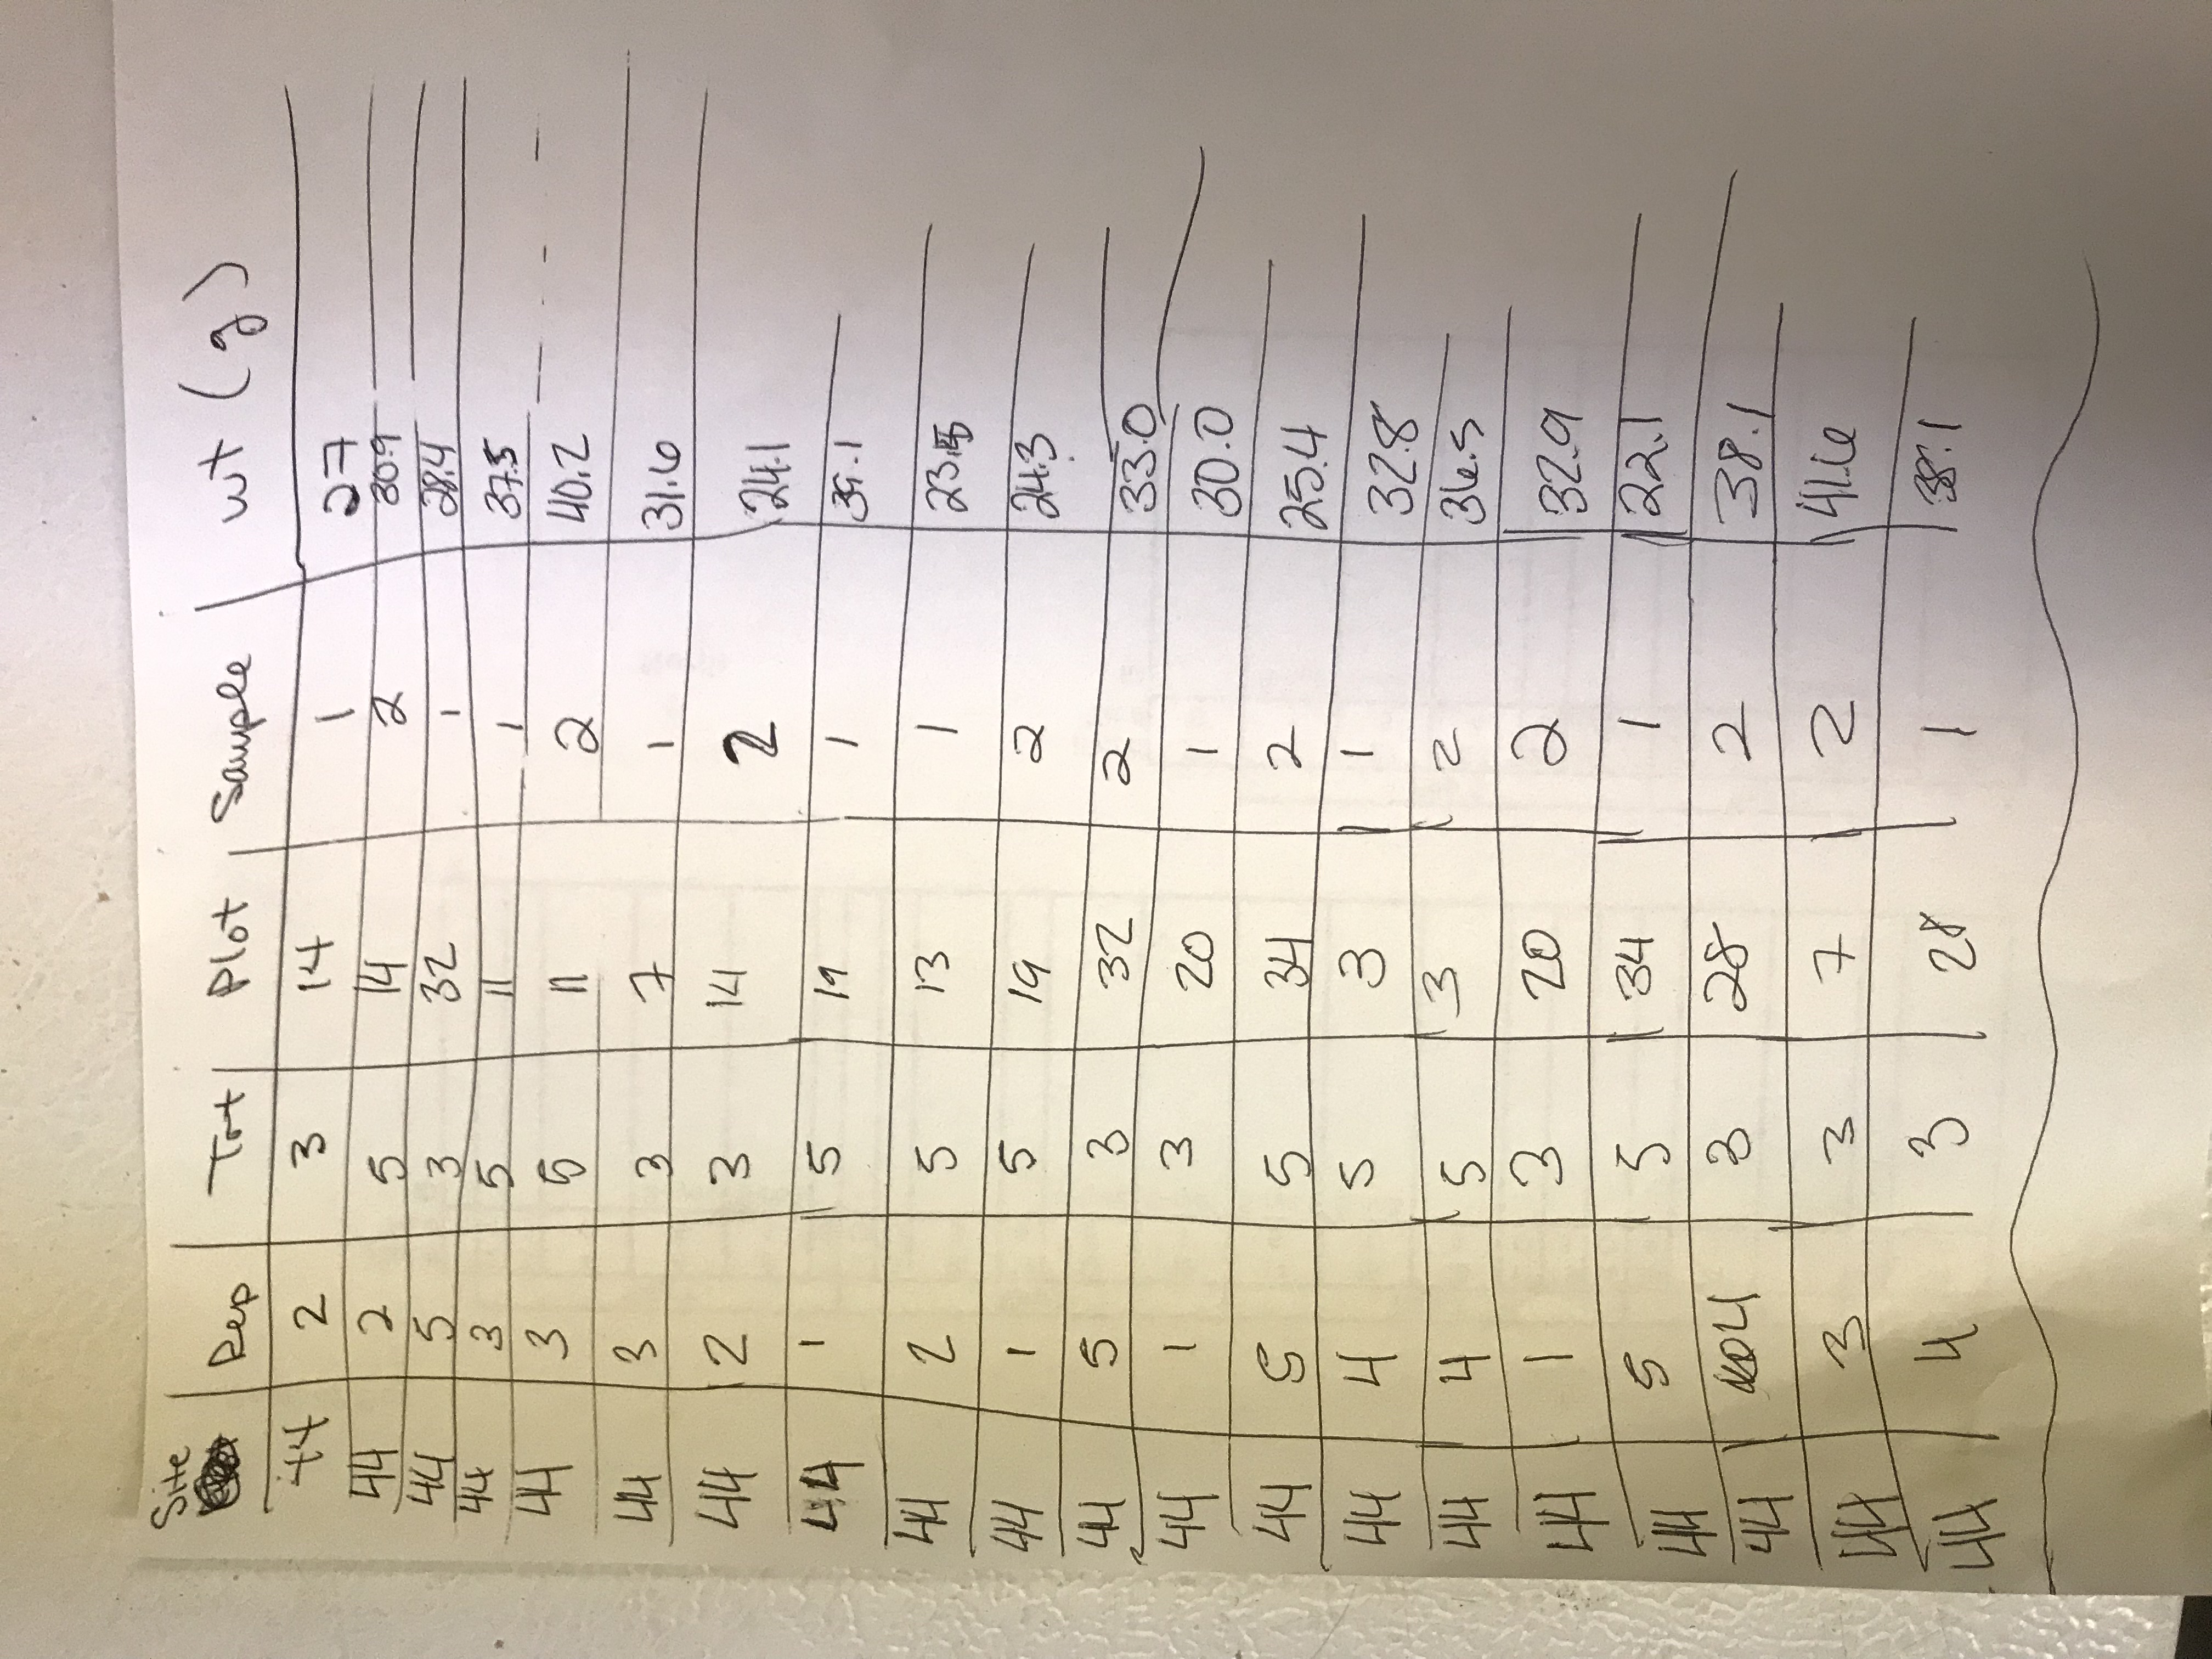 Site Rep Trt Plot Sample wt (g)
44 2 3 14 1 27
44 2 5 14 2 30.9
44 5 3 32 1 28.4
44 3 5 11 1 37.5
44 3 5 11 2 40.2
44 3 3 7 1 31.6
44 2 3 14 2 24.1
44 1 5 19 1 39.1
44 2 5 13 1 23.5
44 1 5 19 2 24.3
44 5 3 32 2 33.0
44 1 3 20 1 30.0
44 5 5 34 2 25.4
44 4 5 3 1 32.8
44 4 5 3 2 36.5
44 1 3 20 2 32.9
44 5 5 34 1 22.1
44 4 3 28 2 38.1
44 3 3 7 2 41.6
44 4 3 28 1 38.1